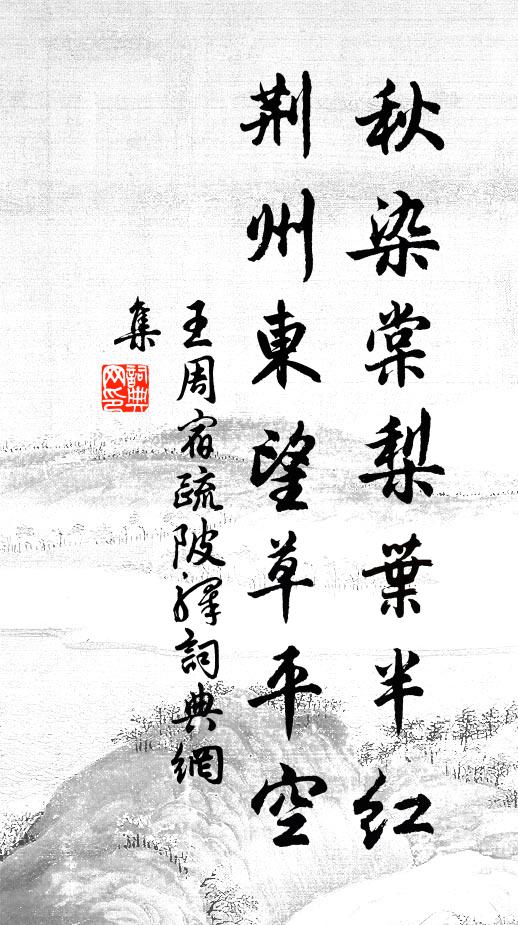 秋染棠梨葉半紅
荊州東望草平空
王周宿疏陂驛詞典網
集
詞典網印